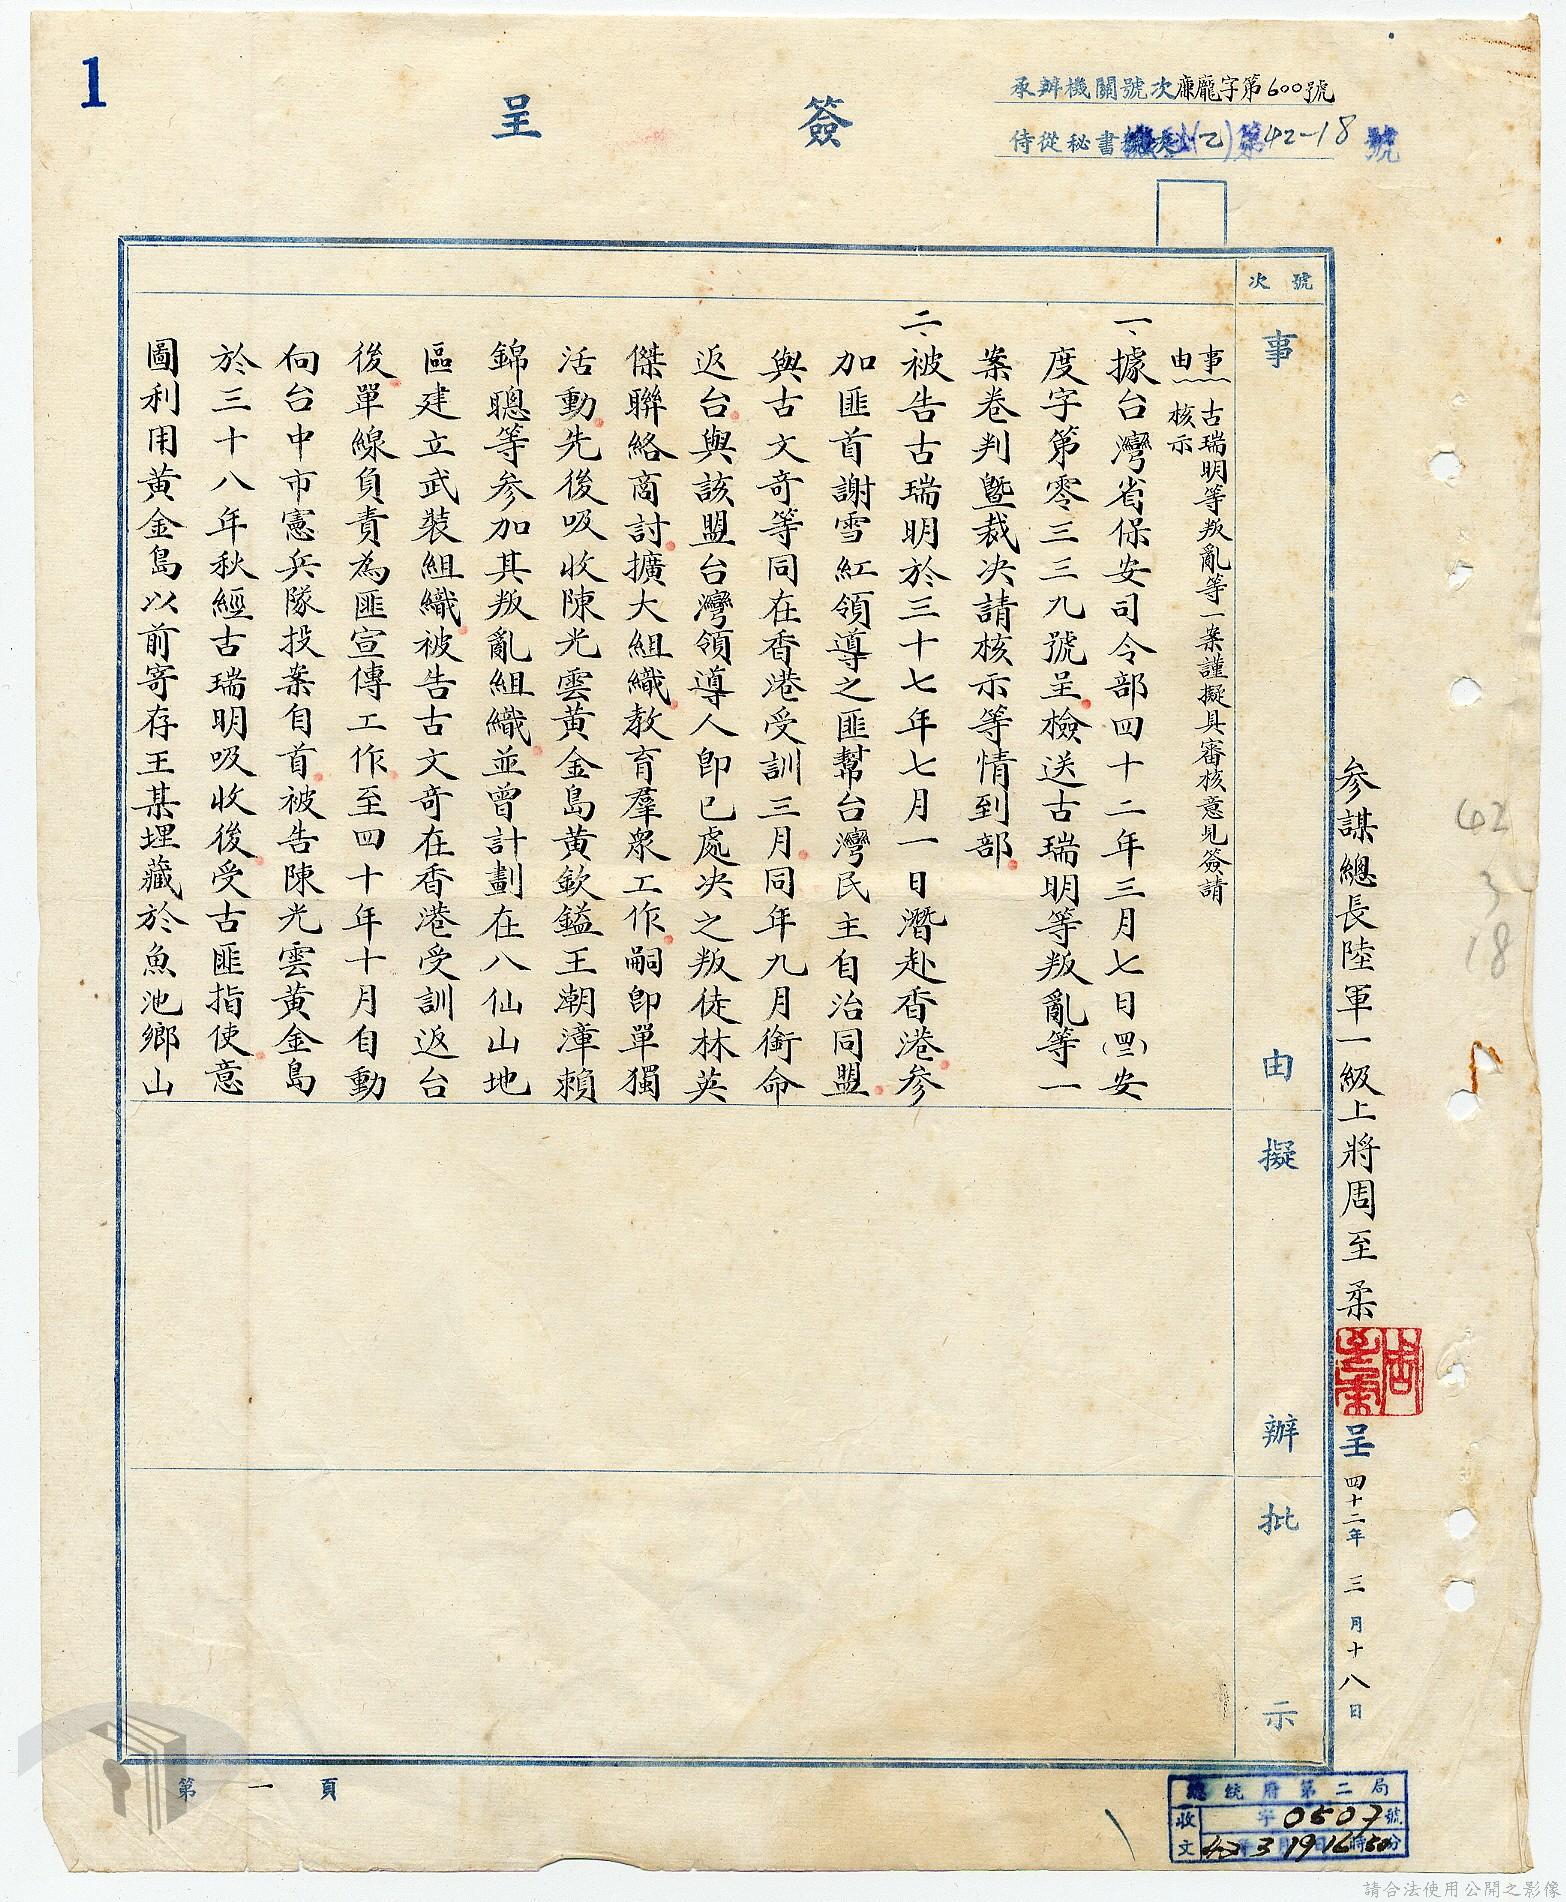 1
簽呈
承辦機關號次廉龐字第600號
侍從秘書(乙)第42-18號
參謀總長陸軍一級上將周至柔
周至柔
呈
四十二年三月十八日
42
3
18
號次
事由
擬辦
批示
事由
古瑞明等叛亂等一案謹擬具審核意見簽請
核示
一、據台灣省保安司令部四十二年三月七日(四二)安
度字第零三三九號呈檢送古瑞明等叛亂等一
案卷判暨裁決請核示等情到部
二、被告古瑞明於三十七年七月一日潛赴香港參
加匪首謝雪紅領導之匪幫台灣民主自治同盟
與古文奇等同在香港受訓三月同年九月銜命
返台與該盟台灣領導人即已處決之叛徒林英
傑聯絡商討擴大組織教育羣眾工作嗣即單獨
活動先後吸收陳光雲黃金島黃欽鎰王潮漳賴
錦聰等參加其叛亂組織並曾計劃在八仙山地
區建立武裝組織被告古文奇在香港受訓返台
後單線負責為匪宣傳工作至四十年十月自動
向台中市憲兵隊投案自首被告陳光雲黃金島
於三十八年秋經古瑞明吸收後受古匪指使意
圖利用黃金島以前寄存王某埋藏於魚池鄉山
第一頁
總統府第二局
收文
字0507號
42年3月19日16時50分
請合法使用公開之影像